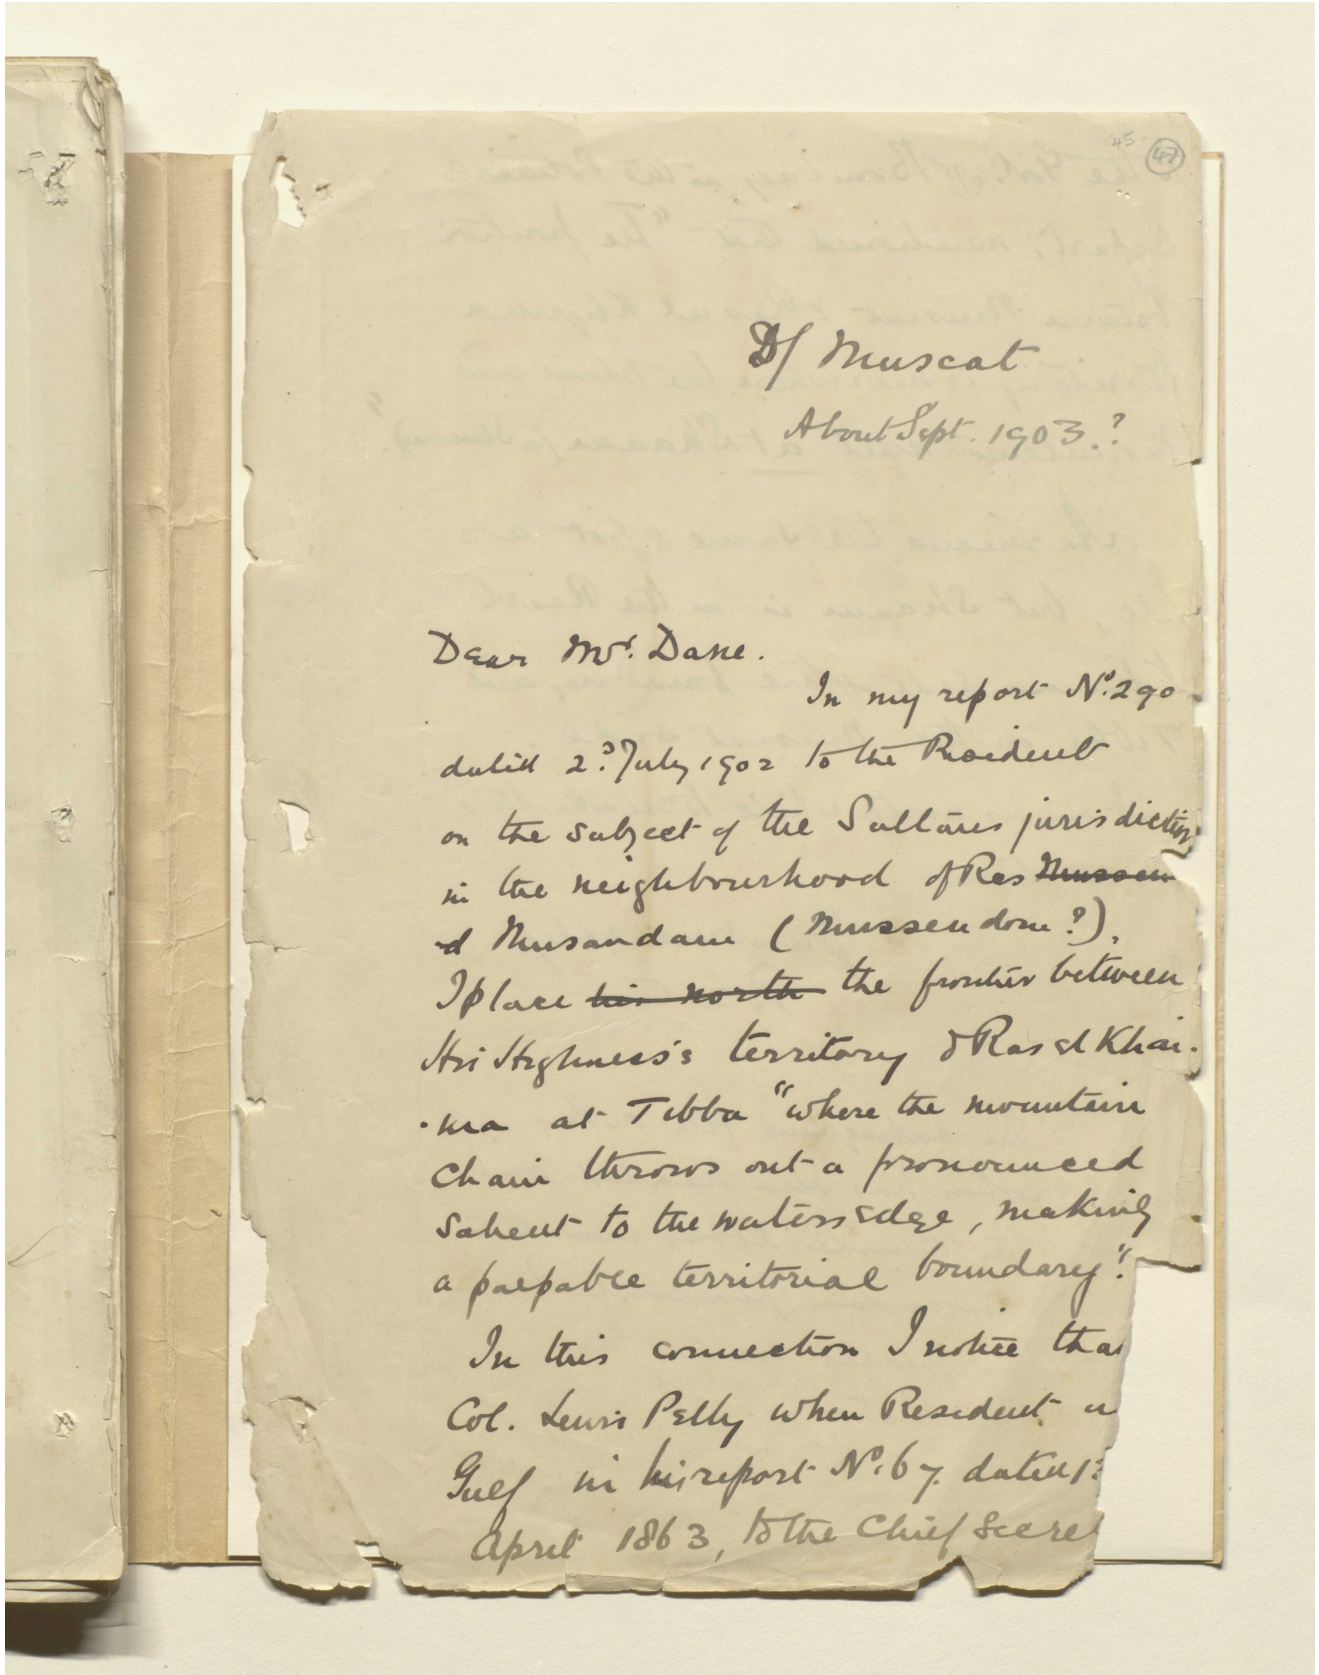 45
47
D/ Muscat
About Sept. 1903.?
Dear Mr. Dane.
In my report No. 290
dated 2? July 1902 to the Resident
on the subject of the Sultans jurisdiction
in the neighbourhood of Ras Mussen
d Musandam (Mussendom?),
I place his north the frontier between
His Highness's territory & Ras el Khai-
-ma at Tibba "where the mountain
chain throws out a pronounced
salient to the waters edge, making
a palpable territorial boundary".
In this connection I notice tha
Col. Lewis Pelly when Resident
Gulf in his report No. 67. dated 13
April 1863, to the Chief Secret